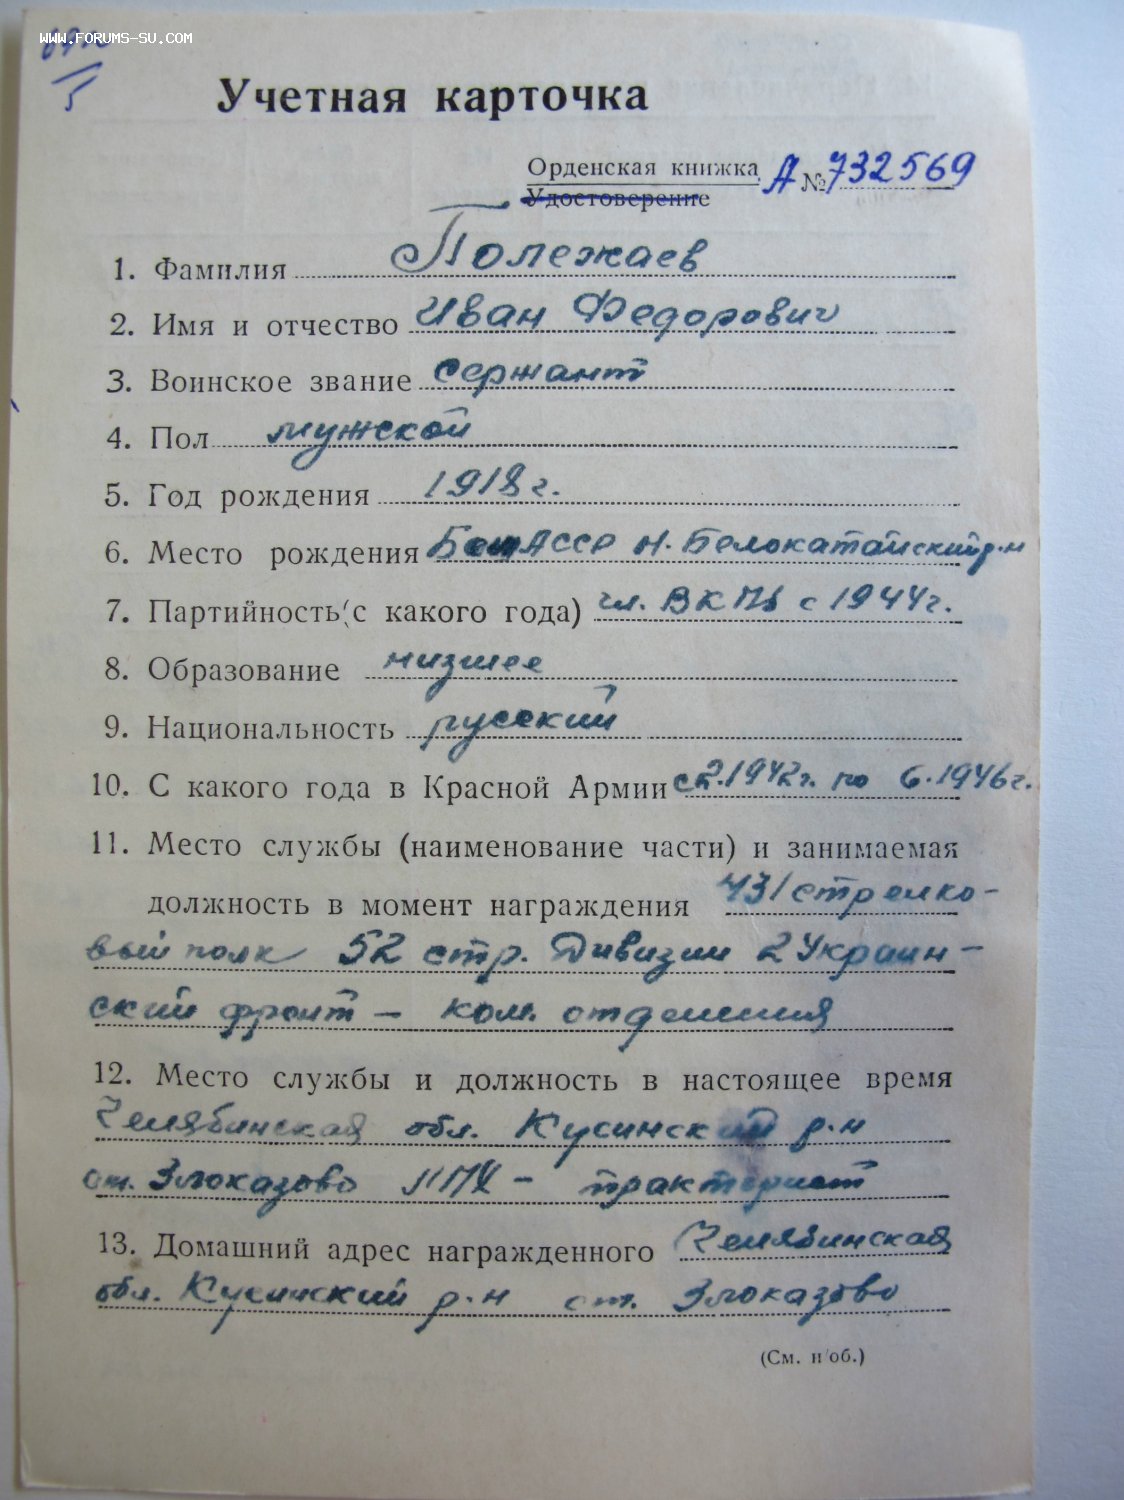 www.forums-su.com
5
Учетная карточка
Орденская книжка А № 732569
Удостоверение
1. Фамилия Полежаев
2. Имя и отчество Иван Федорович
3. Воинское звание сержант
4. Пол мужской
5. Год рождения 1918 г.
6. Место рождения БашАССР Н. Белокатайский р-н
7. Партийность (с какого года) чл. ВКПб с 1944 г.
8. Образование низшее
9. Национальность русский
10. С какого года в Красной Армии с 2.1942 г. по 6.1946 г.
11. Место службы (наименование части) и занимаемая
должность в момент награждения 431 стрелко-
вый полк 52 стр. Дивизии 2 Украин-
ский фронт - ком. отделения
12. Место службы и должность в настоящее время
Челябинская обл. Кусинский р-н
ст. Злоказово - тракторист
13. Домашний адрес награжденного Челябинская
обл. Кусинский р-н ст. Злоказово
(См. н/об.)